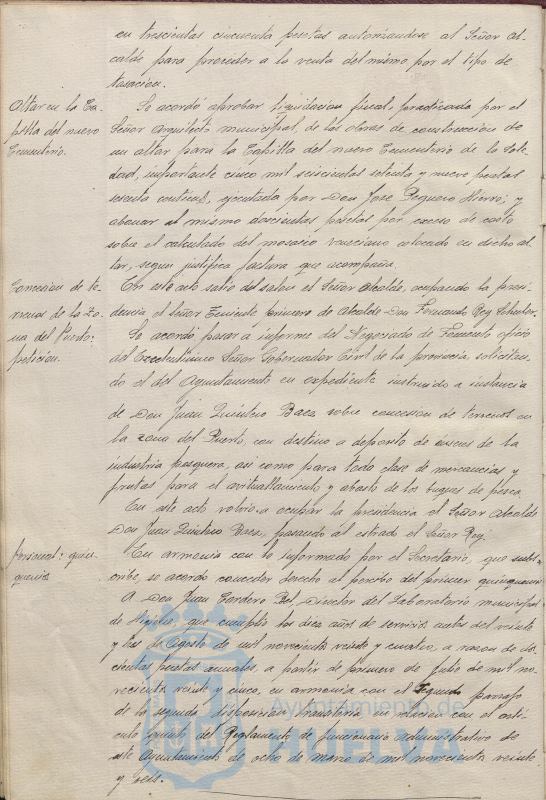 en trescientas cincuenta pesetas autorizandose al Señor Al-
calde para proceder a la venta del mismo por el tipo de
tasación.
Altar en la Ca-
pilla del nuevo
Cementerio.
Se acordó aprobar liquidación final, practicada por el
Señor Arquitecto municipal, de las obras de construcción de
un altar para la Capilla del nuevo Cementerio de la Sole-
dad, importante cinco mil seiscientas setenta y nueve pesetas
sesenta centimos, ejecutada por Don Jose Peguero Hierro; y
abonar al mismo doscientas pesetas por exceso de costo
sobre el calculado del mosaico veneciano colocado en dicho al-
tar, segun justifica factura que acompaña.
Concesion de te-
rrenos de la Zo-
na del Puerto:
peticion.
En este acto salió del salon el Señor Alcalde, ocupando la presi-
dencia el Señor Teniente primero de Alcalde Don Fernando Rey
Se acordó pasar a informe del Negociado de Fomento oficio
del Excelentisimo Señor Gobernador Civil de la provincia solicitan-
do el del Ayuntamiento en expediente instruido a instancia
de Don Juan Quintero Baez sobre concesion de terrenos en
la zona del Puerto, con destino a deposito de enseres de la
industria pesquera, asi como para toda clase de mercancias y
frutas para el avituallamiento y abasto de los buques de pesca.
En este acto volvió a ocupar la presidencia el Señor Alcalde
Don Juan Quintero Baez, pasando al estrado el Señor Rey.
Personal: quin-
quenios
En armonia con lo informado por el Secretario, que subs-
cribe, se acordo conceder derecho al percibo del primer quinquenio
A Don Juan Cordero Bel, Director del Laboratorio municipal
de Higiene, que cumplió los diez años de servicios antes del veinte
y tres de Agosto de mil novecientos veinte y cuatro, a razon de dos-
cientas pesetas anuales, a partir de primero de Julio de mil no-
vecientos veinte y cinco, en armonia con el segundo parrafo
de la segunda disposicion transitoria en relacion con el arti-
culo del Reglamento de funcionarios administrativos de
este Ayuntamiento de ocho de Marzo de mil novecientos veinte
y seis.
Ayuntamiento de
HUELVA